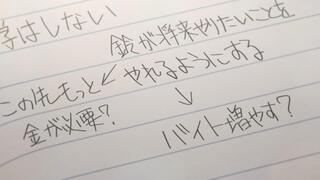 学はしない
鈴が将来やりたいことを
やれるようにする
この先もっと
金が必要?
バイト増やす?